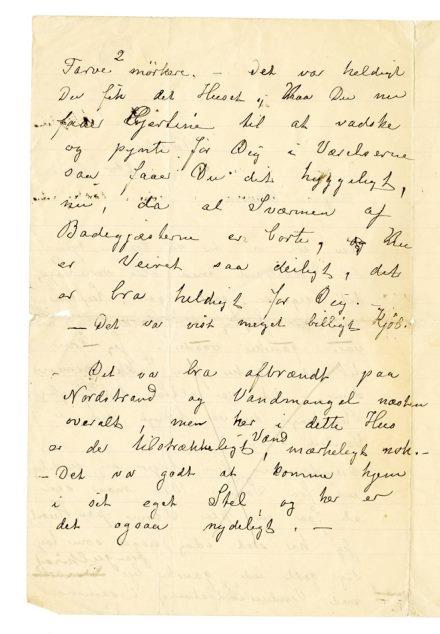 Farve 2 mörkere. – det var heldigt
Du fik det Huset, Naa Du nu
faaer Gjertine til at vadske
og pynte for Dig i Værelserne
saa faaer Du det hyggeligt,
nu, da al Sværmen af
Badegjæsterne er borte, og Nu
er Veiret saa deiligt, det
er bra heldigt for Dig. –
– Det var vist meget billigt Kjöb.
– Det va bra afbrændt paa
Nordstrand og Vandmangel næsten
overalt, men her i dette Hus
er de tilstrækkeligt Vand, mærkeligt nok. –
– Det var godt at komme hjem
i sit eget Stel, og her er
det ogsaa nydeligt. –